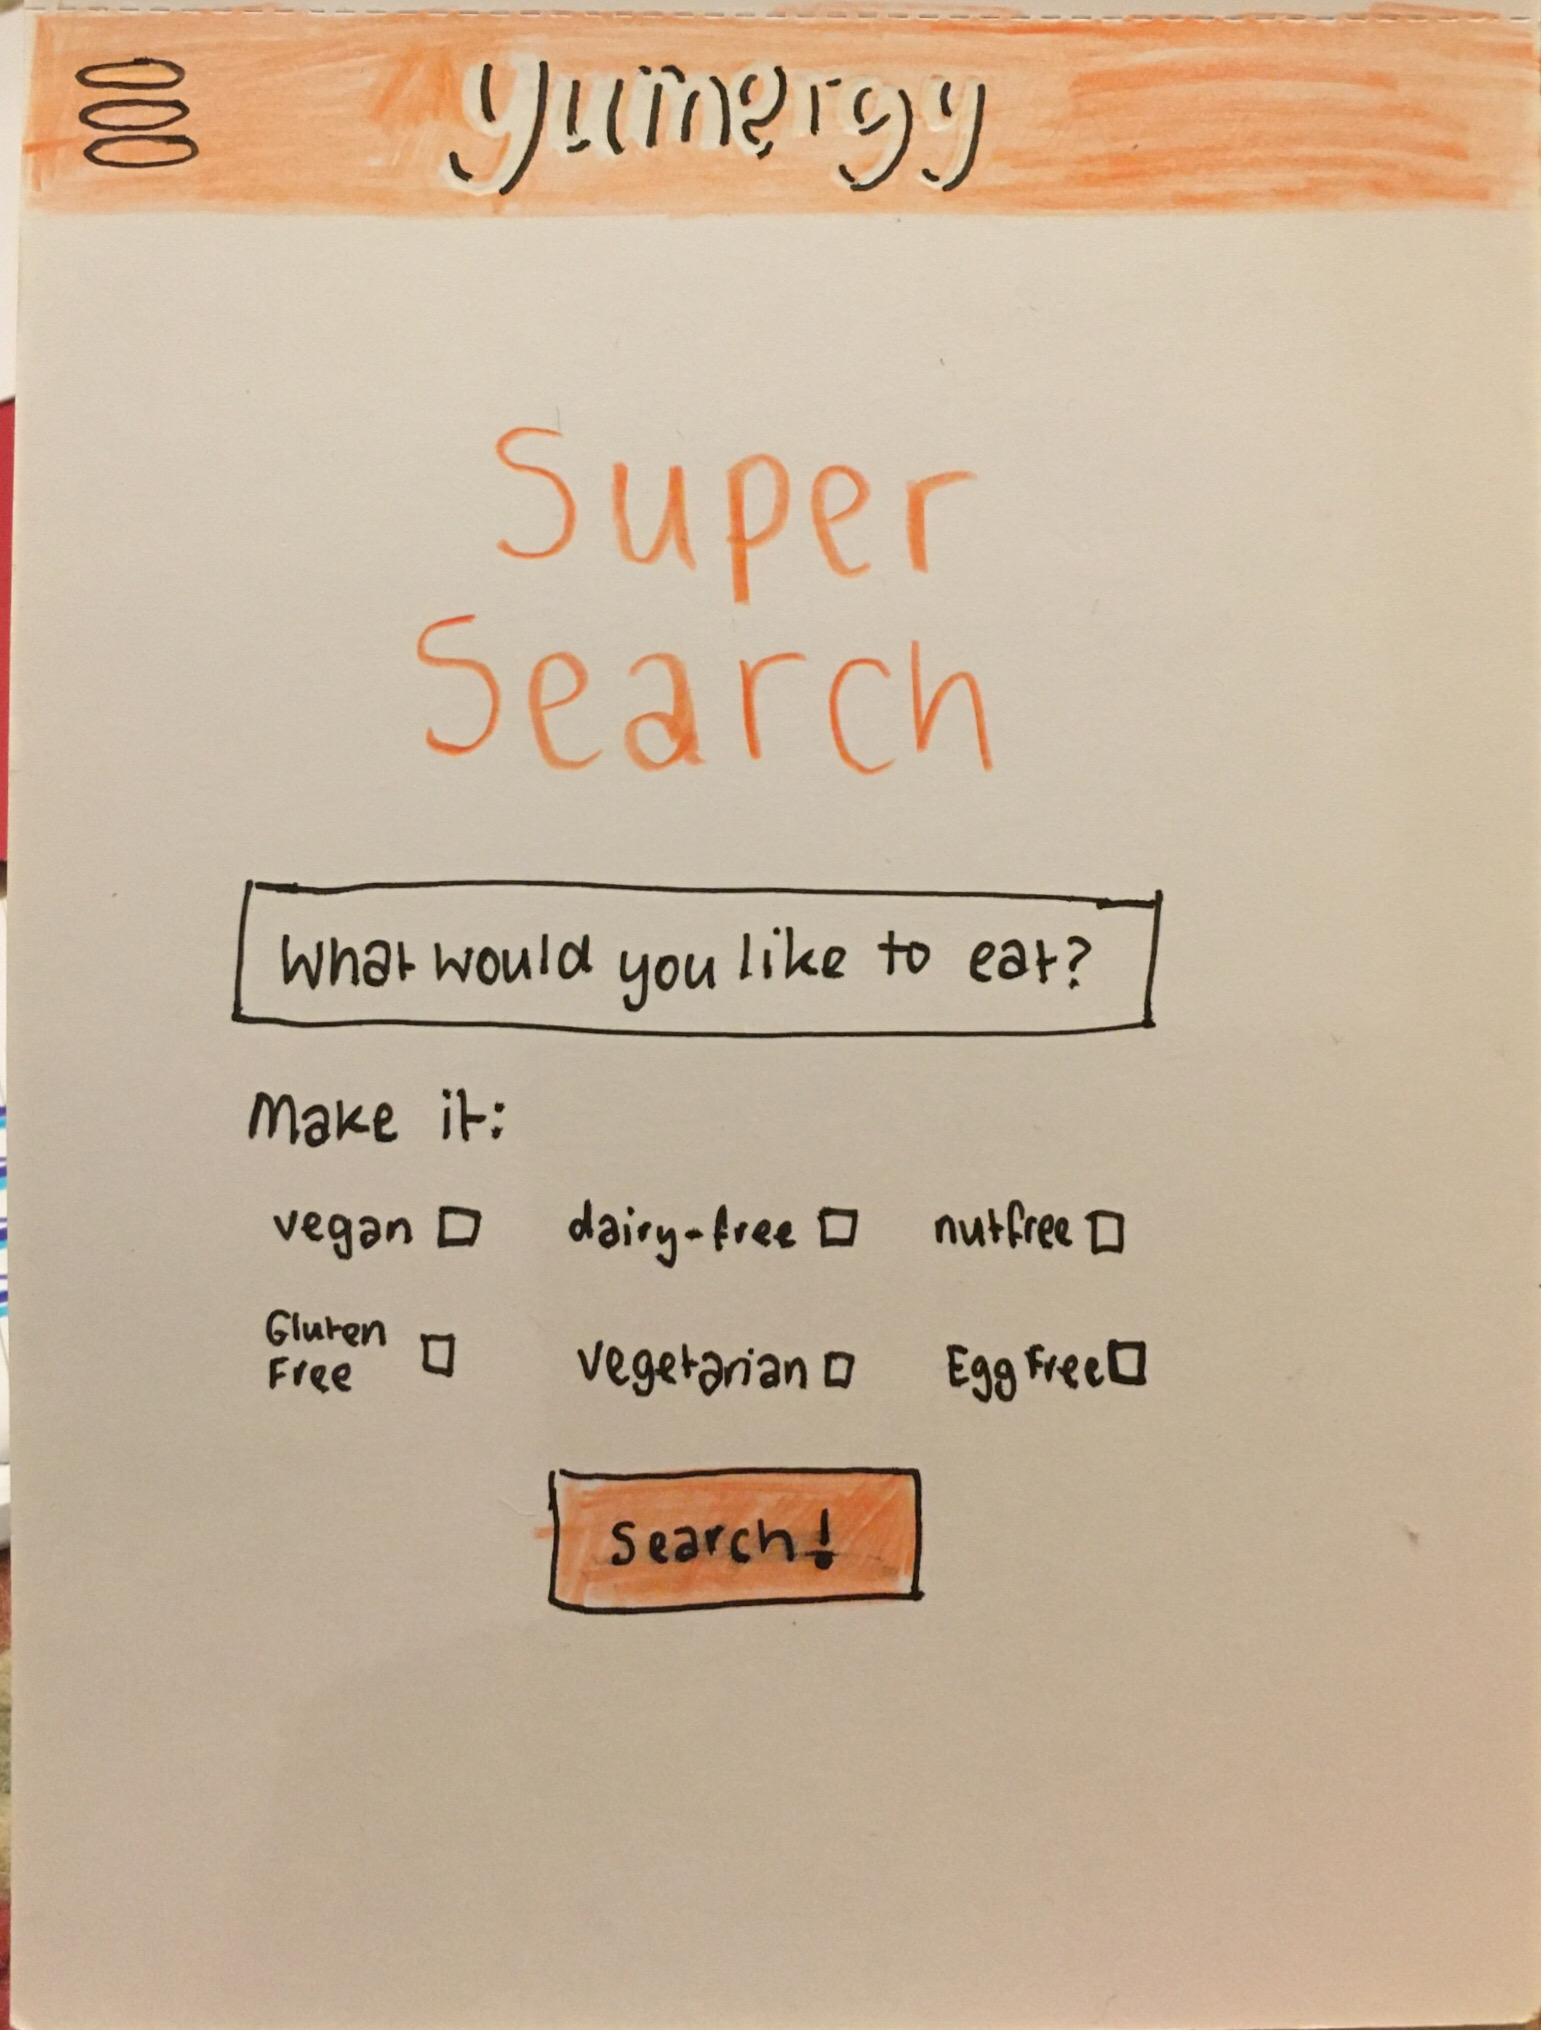 yumergy
Super
Search
What would you like to eat?
Make it:
vegan dairy-free nutfree
Gluten
Free vegetarian Egg Free
Search!